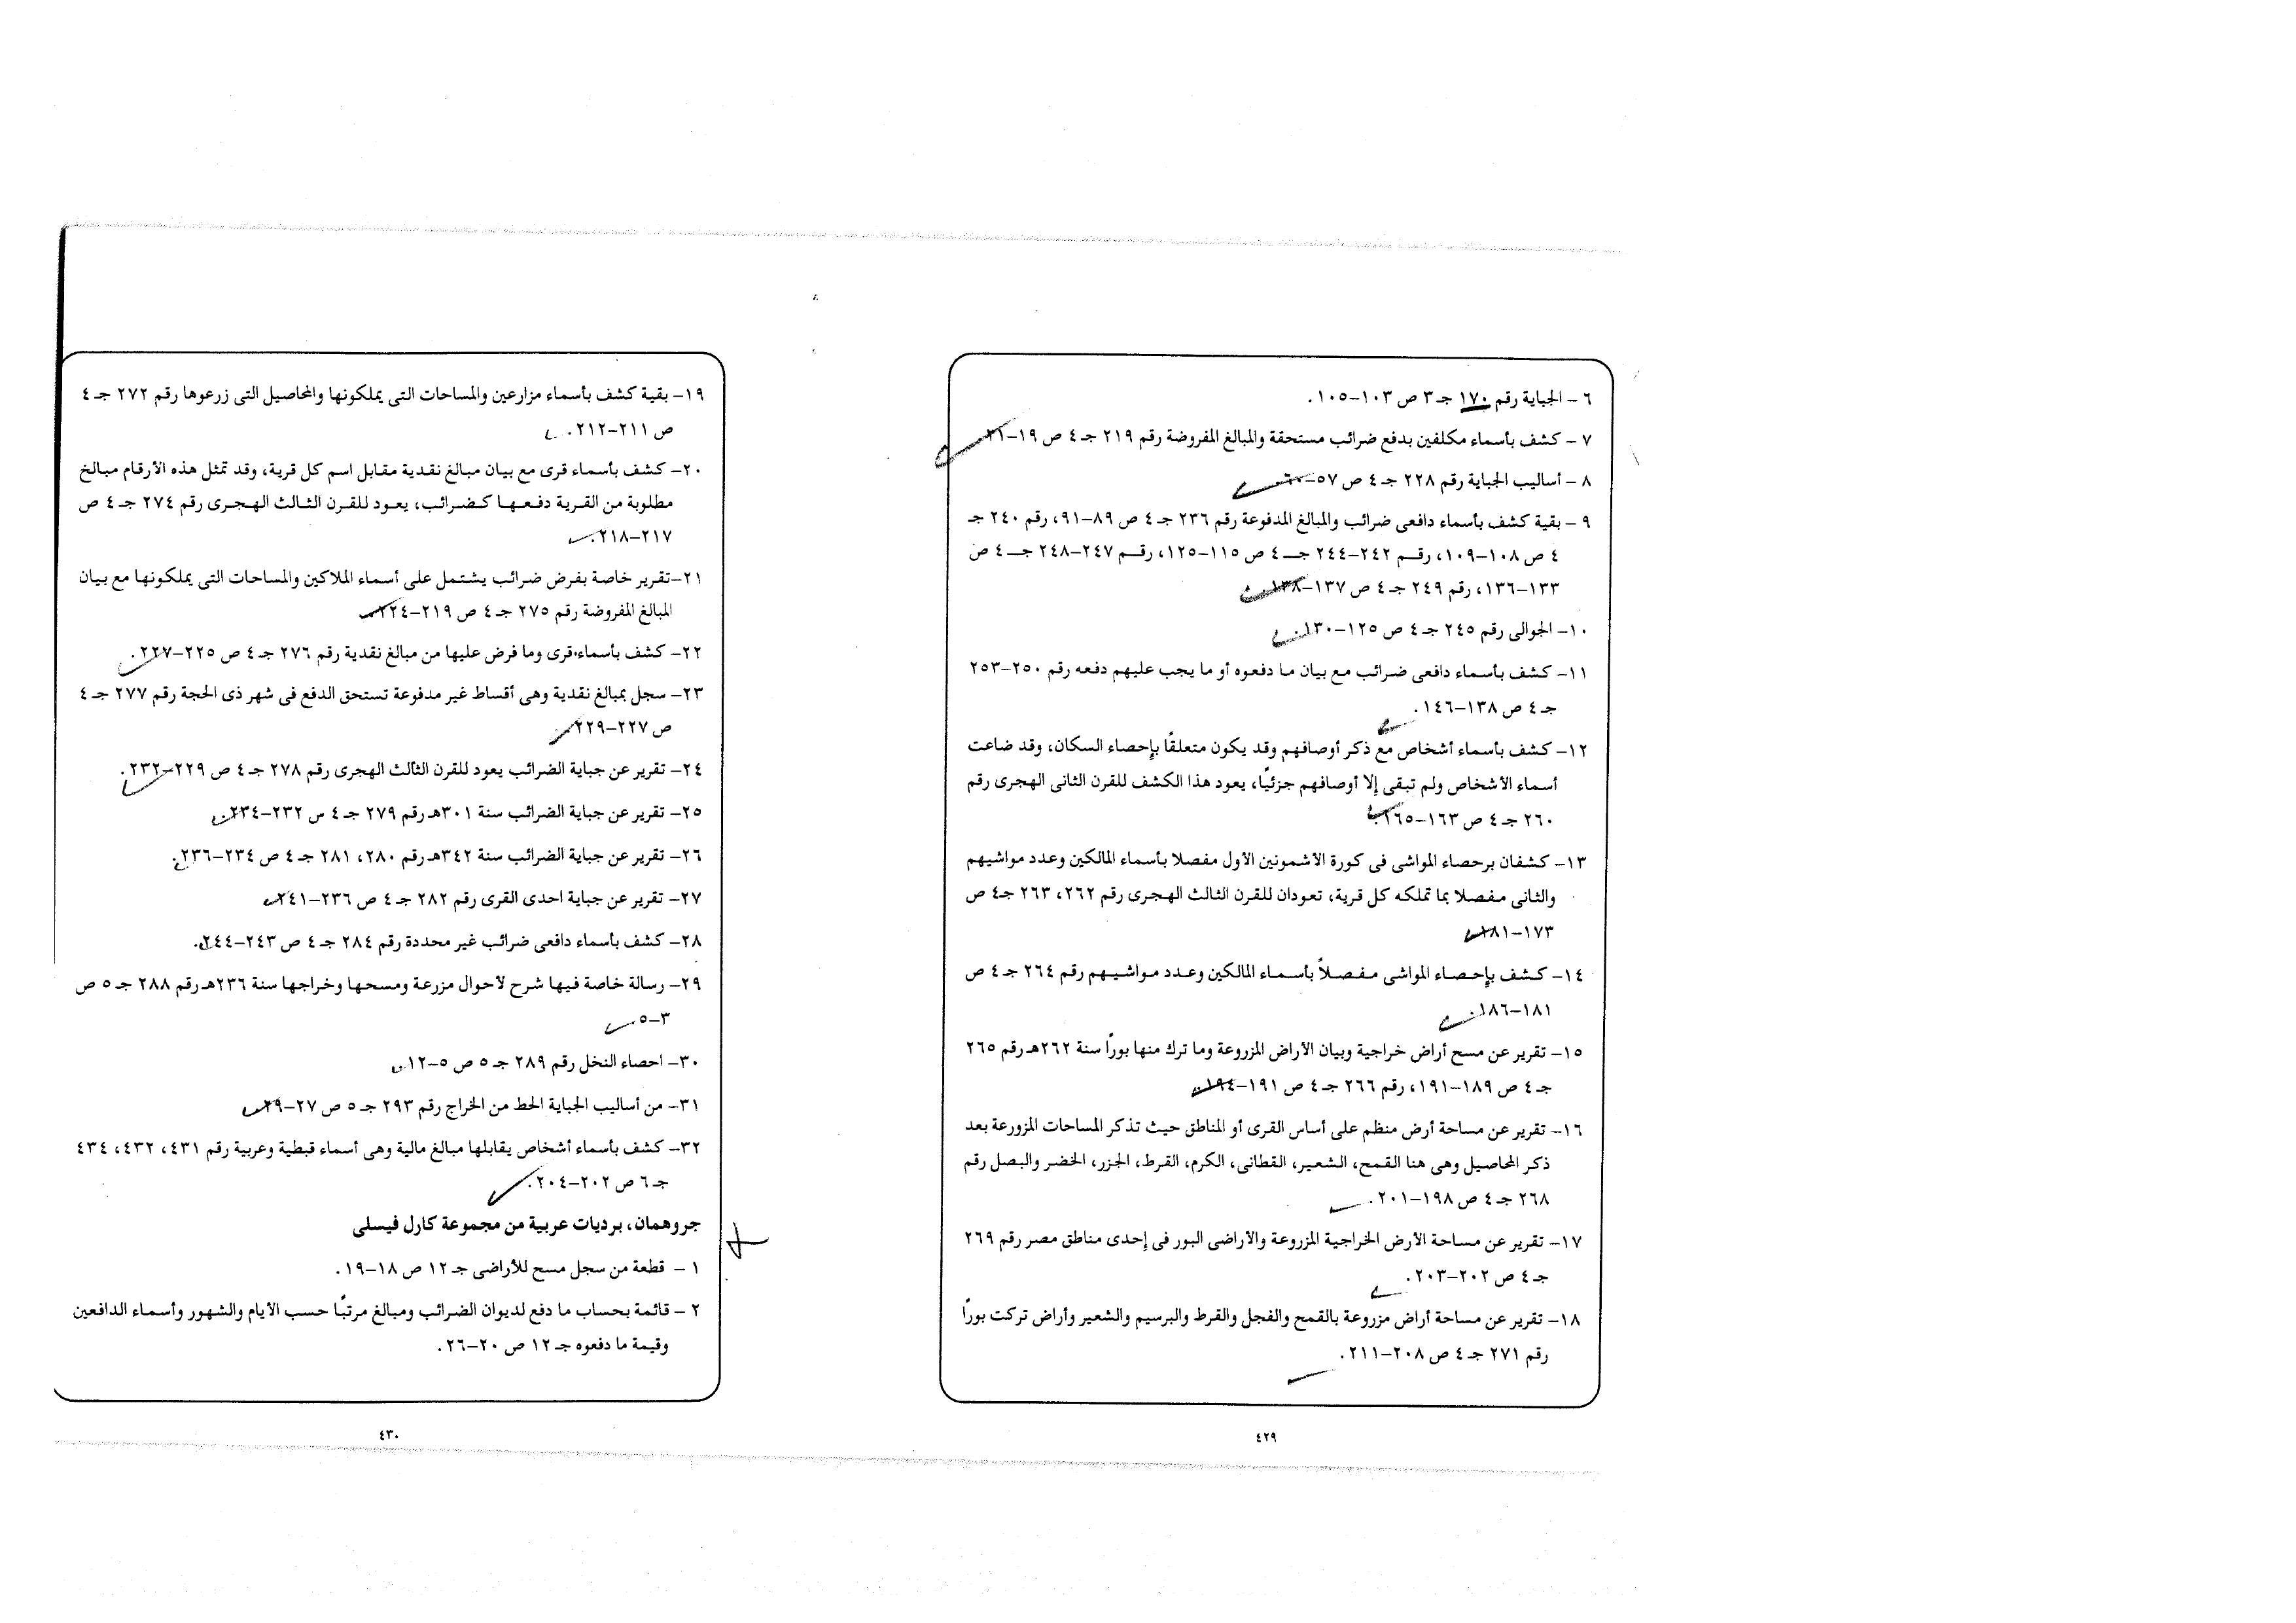 ٦ – الجباية رقم ١٧٠ جـ ٣ ص ١٠٣–١٠٥.
٧ – كشف بأسماء مكلفين بدفع ضرائب مستحقة والمبالغ المفروضة رقم ٢١٩ جـ ٤ ص ١٩–٢١
٨ – أساليب الجباية رقم ٢٢٨ جـ ٤ ص ٥٧–٦٠.
٩ – بقية كشف بأسماء دافعى ضرائب والمبالغ المدفوعة رقم ٢٣٦ جـ ٤ ص ٨٩–٩١، رقم ٢٤٠ جـ
٤ ص ١٠٨–١٠٩، رقـم ٢٤٢–٢٤٤ جـ ٤ ص ١١٥–١٢٥، رقـم ٢٤٧–٢٤٨ جـ ٤ ص
١٣٣–١٣٦، رقم ٢٤٩ جـ ٤ ص ١٣٧–١٣٨.
١٠– الجوالى رقم ٢٤٥ جـ ٤ ص ١٢٥–١٣٠.
١١– كشف بأسماء دافعى ضرائب مع بيان ما دفعوه أو ما يجب عليهم دفعه رقم ٢٥٠–٢٥٣
جـ ٤ ص ١٣٨–١٤٦.
١٢– كشف بأسماء أشخاص مع ذكر أوصافهم وقد يكون متعلقًا بإحصاء السكان، وقد ضاعت
أسماء الأشخاص ولم تبقى إلا أوصافهم جزئيًا، يعود هذا الكشف للقرن الثانى الهجرى رقم
٢٦٠ جـ ٤ ص ١٦٣–١٦٥.
١٣– كشفان برحصاء المواشى فى كورة الأشمونين الأول مفصلا بأسماء المالكين وعدد مواشيهم
والثانى مفصلا بما تملكه كل قرية، تعودان للقرن الثالث الهجرى رقم ٢٦٢، ٢٦٣ جـ٤ ص
١٧٣–١٨١.
١٤– كشف بإحصاء المواشى مفصلاً بأسماء المالكين وعدد مواشيهم رقم ٢٦٤ جـ ٤ ص
١٨١–١٨٦.
١٥– تقرير عن مسح أراض خراجية وبيان الأراض المزروعة وما ترك منها بورًا سنة ٢٦٢هـ رقم ٢٦٥
جـ ٤ ص ١٨٩–١٩١، رقم ٢٦٦ جـ ٤ ص ١٩١–١٩٤.
١٦– تقرير عن مساحة أرض منظم على أساس القرى أو المناطق حيث تذكر المساحات المزورعة بعد
ذكر المحاصيل وهى هنا القمح، الشعير، القطانى، الكرم، القرط، الجزر، الخضر والبصل رقم
٢٦٨ جـ ٤ ص ١٩٨–٢٠١.
١٧– تقرير عن مساحة الأرض الخراجية المزروعة والأراضى البور فى إحدى مناطق مصر رقم ٢٦٩
جـ ٤ ص ٢٠٢–٢٠٣.
١٨– تقرير عن مساحة أراض مزروعة بالقمح والفجل والقرط والبرسيم والشعير وأراض تركت بورًا
رقم ٢٧١ جـ ٤ ص ٢٠٨–٢١١.
٤٢٩
١٩– بقية كشف بأسماء مزارعين والمساحات التى يملكونها والمحاصيل التى زرعوها رقم ٢٧٢ جـ ٤
ص ٢١١–٢١٢.
٢٠– كشف بأسماء قرى مع بيان مبالغ نقدية مقابل اسم كل قرية، وقد تمثل هذه الأرقام مبالخ
مطلوبة من القرية دفعها كضرائب، يعود للقرن الثالث الهجرى رقم ٢٧٤ جـ ٤ ص
٢١٧–٢١٨.
٢١–تقرير خاصة بفرض ضرائب يشتمل على أسماء الملاكين والمساحات التى يملكونها مع بيان
المبالغ المفروضة رقم ٢٧٥ جـ ٤ ص ٢١٩–٢٢٤
٢٢– كشف بأسماء قرى وما فرض عليها من مبالغ نقدية رقم ٢٧٦ جـ ٤ ص ٢٢٥–٢٢٧.
٢٣– سجل بمبالغ نقدية وهى أقساط غير مدفوعة تستحق الدفع فى شهر ذى الحجة رقم ٢٧٧ جـ ٤
ص ٢٢٧–٢٢٩.
٢٤– تقرير عن جباية الضرائب يعود للقرن الثالث الهجرى رقم ٢٧٨ جـ ٤ ص ٢٢٩–٢٣٢.
٢٥– تقرير عن جباية الضرائب سنة ٣٠١هـ رقم ٢٧٩ جـ ٤ س ٢٣٢–٢٣٤.
٢٦– تقرير عن جباية الضرائب سنة ٣٤٢هـ رقم ٢٨٠، ٢٨١ جـ ٤ ص ٢٣٤–٢٣٦.
٢٧– تقرير عن جباية احدى القرى رقم ٢٨٢ جـ ٤ ص ٢٣٦–٢٤١
٢٨– كشف بأسماء دافعى ضرائب غير محددة رقم ٢٨٤ جـ ٤ ص ٢٤٣–٢٤٤.
٢٩– رسالة خاصة فيها شرح لأحوال مزرعة ومسحها وخراجها سنة ٢٣٦هـ رقم ٢٨٨ جـ ٥ ص
٣–٥.
٣٠– احصاء النخل رقم ٢٨٩ جـ ٥ ص ٥–١٢.
٣١– من أساليب الجباية الحط من الخراج رقم ٢٩٣ جـ ٥ ص ٢٧–٢٩.
٣٢– كشف بأسماء أشخاص يقابلها مبالغ مالية وهى أسماء قبطية وعربية رقم ٤٣١، ٤٣٢، ٤٣٤
جـ ٦ ص ٢٠٢–٢٠٤.
جروهمان، برديات عربية من مجموعة كارل فيسلى
١ – قطعة من سجل مسح للأراضى جـ ١٢ ص ١٨–١٩.
٢ – قائمة بحساب ما دفع لديوان الضرائب ومبالغ مرتبًا حسب الأيام والشهور وأسماء الدافعين
وقيمة ما دفعوه جـ ١٢ ص ٢٠–٢٦.
٤٣٠